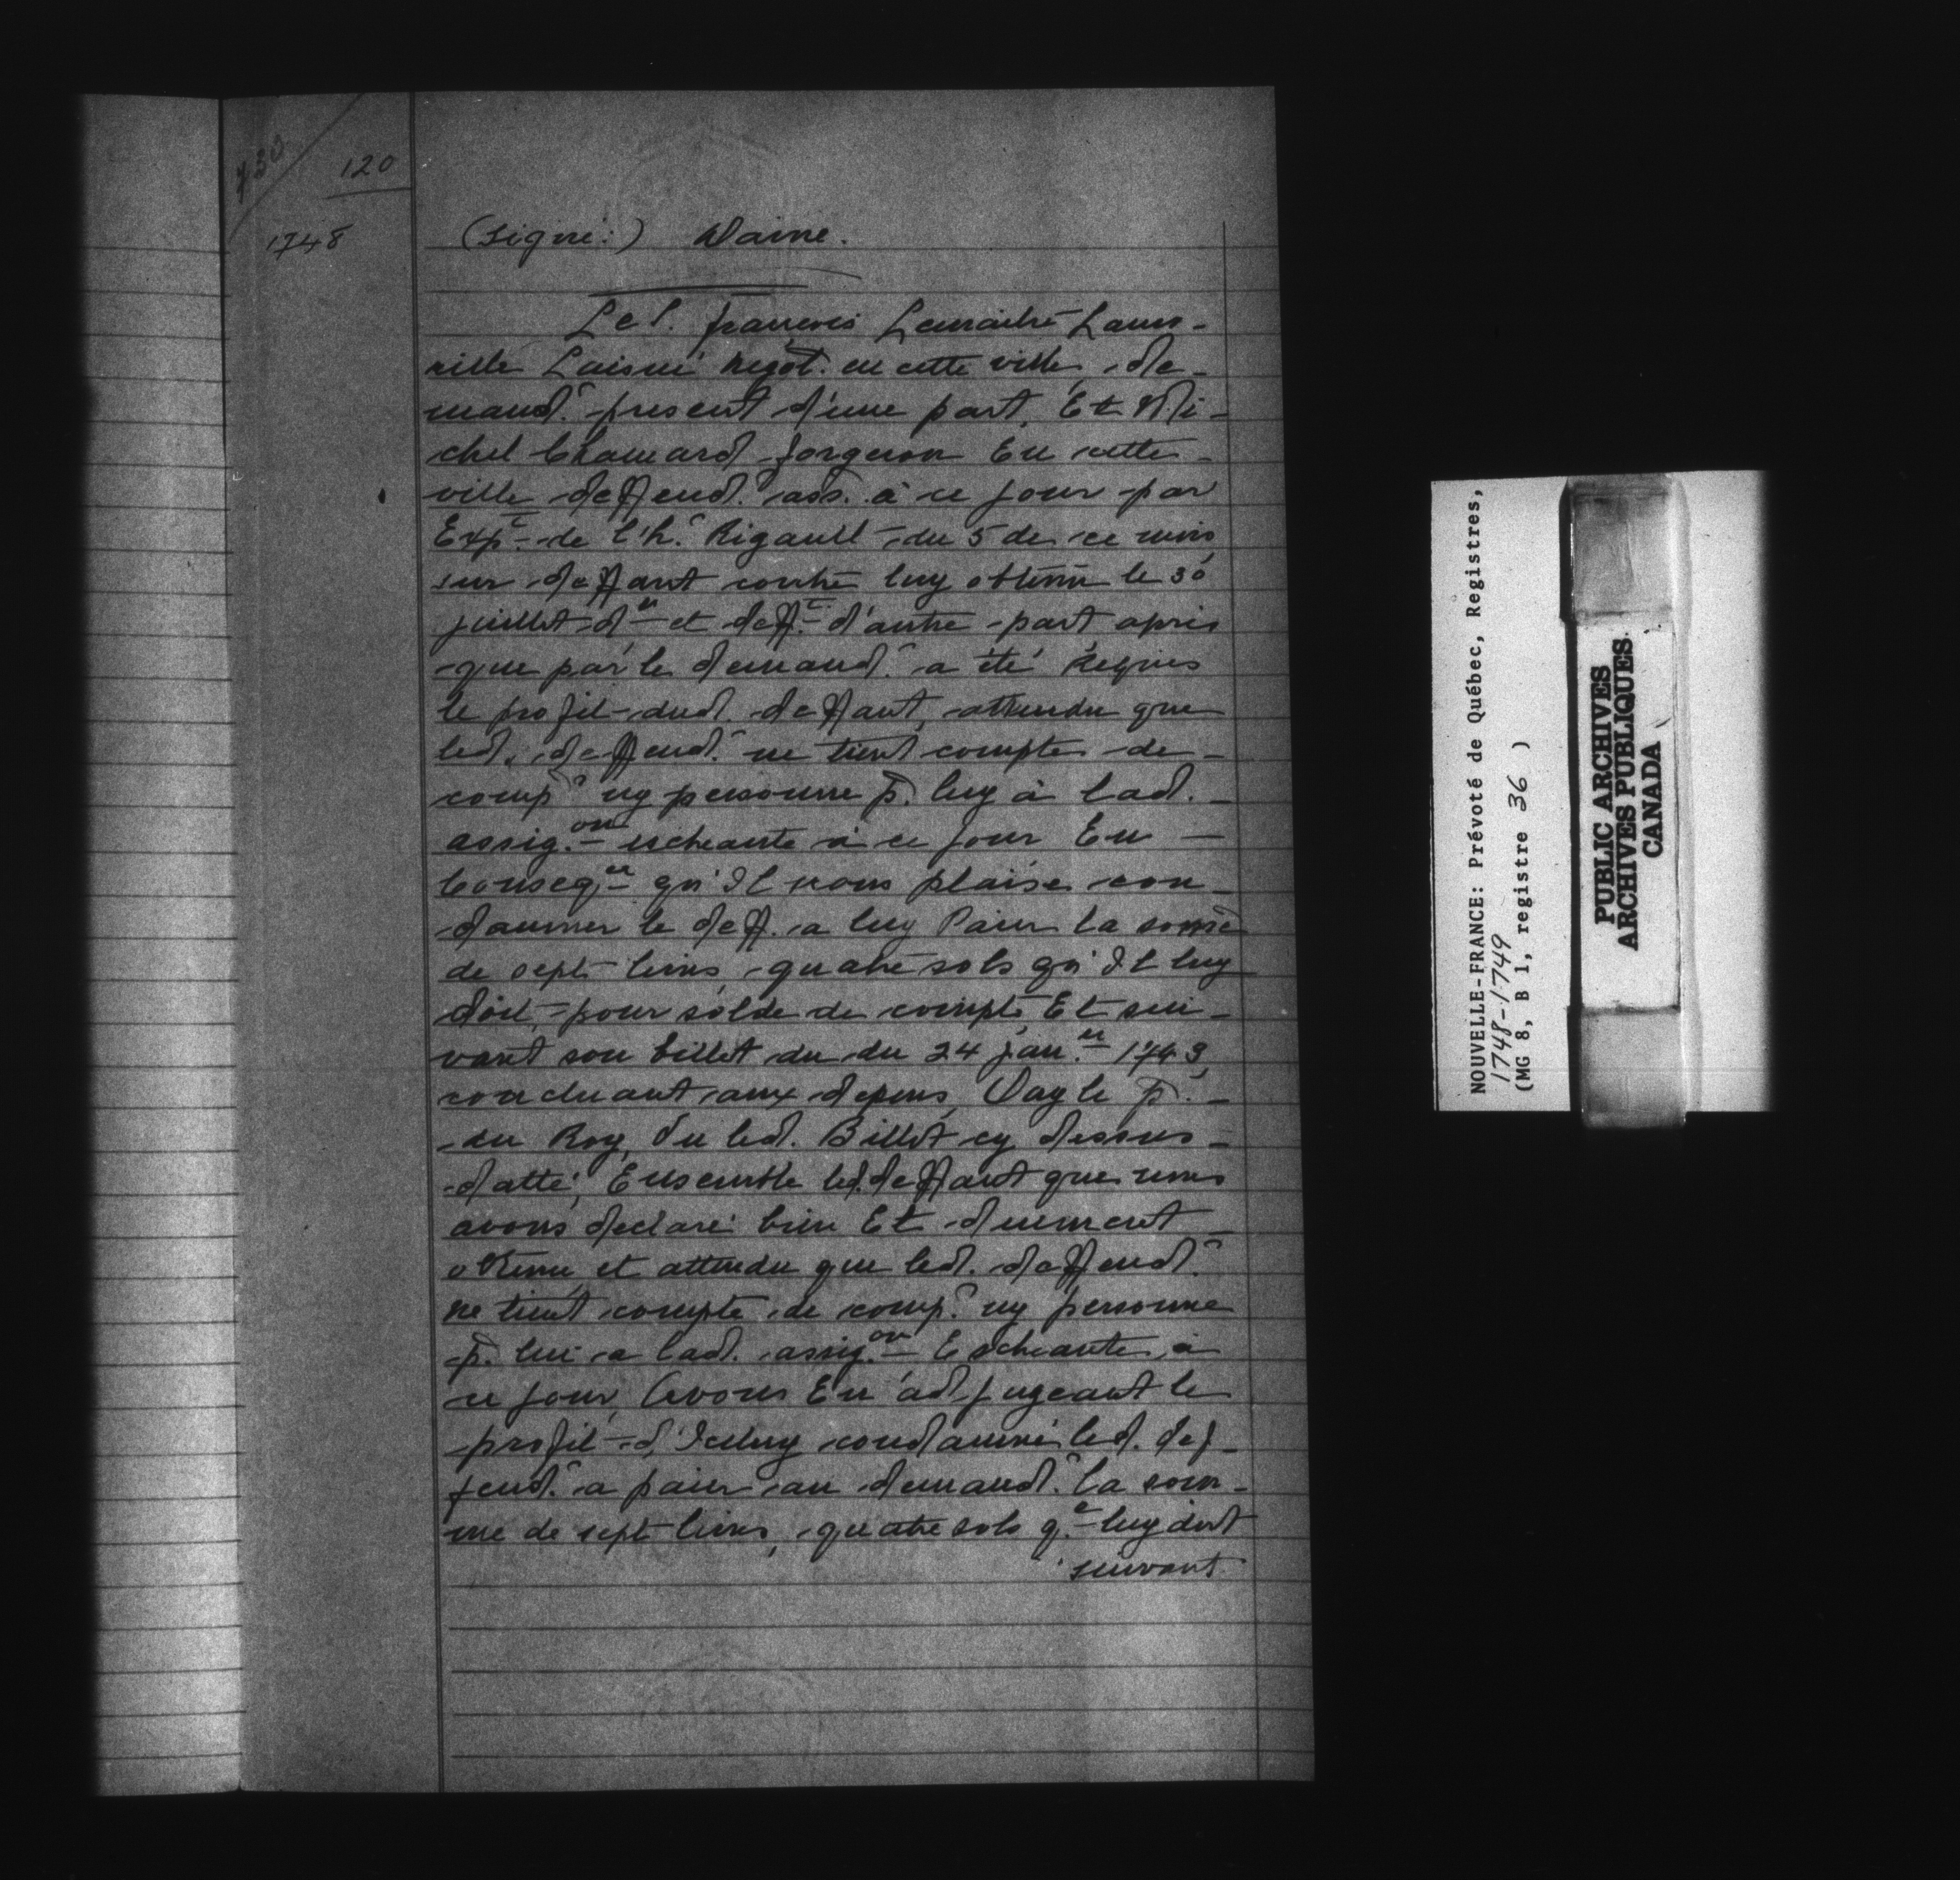 730
120
1748
(signé:) Daine.
Le S. françois Lemaitre Lamo-
rille Laisné negot. en cette ville, de-
mand.r present d'une part, Et Mi-
chel Chamard forgeron En cette
ville deffend.r ass. à ce jour par
Exp.t de l'h.r Rigault du 5 de ce mois
sur deffaut contre luy obtenu le 30
juillet d.er et deff.t d'autre part après
que par le demand.r a été Requis
le profit dud. deffaut, attendu que
led. deffend.r ne tient compte de
comp.r ny personne p.r luy à lad.
assig.on escheante à ce jour En
Conseq.ce qu'Il nous plaise con-
damner le deff. a luy Paier la somme
de sept livres quatre sols qu'Il luy
doit pour solde de compte Et sui-
vant son billet du du 24 jan.er 1743,
concluant aux depens, Oay le p.r
du Roy, Vu led. Billet cy dessus
datté, Ensemble led. deffaut que nous
avons declaré bien Et duement
obtenu et attendu que led. deffend.r
ne tient compte de comp.r ny personne
p.r lui a lad. assig.on Escheante, à
ce jour, Avons En adjugeant le
profit d'Iceluy condamné led. def-
fend.r a paier au demand.r la som-
me de sept livres, quatre sols q.e luy doit
suivant
NOUVELLE-FRANCE: Prévoté de Québec, Registres,
1748-1749
(MG 8, B 1, registre 36 )
PUBLIC ARCHIVES
ARCHIVES PUBLIQUES
CANADA